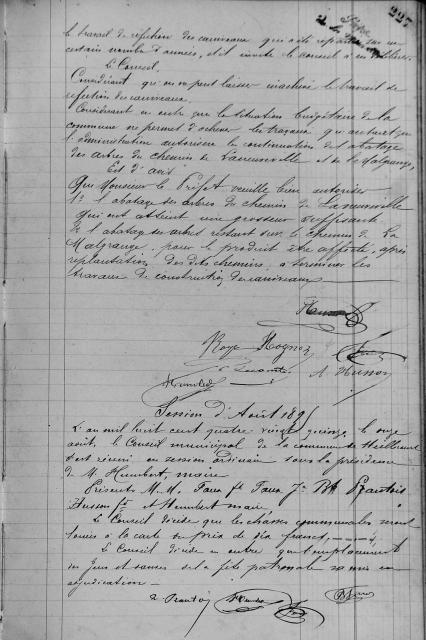 227
le travail de réfection des caniveaux qui a été réparti sur un
certain nombre d'années, et il invite le conseil à en délibérer.
Le Conseil,
Considérant qu'on ne peut laisser inachevé le travail de
réfection des caniveaux,
Considérant en outre que la situation budgétaire de la
commune ne permet d'achever les travaux qu'autant que
l'administration autorisera la continuation de l'abatage
des arbres du chemin de Laneuveville et de la Malgrange,
Est d'avis
Que Monsieur le Préfet veuille bien autoriser
1° l'abatage des arbres du chemin de Laneuveville
qui ont atteint une grosseur suffisante
2° l'abatage des arbres restant sur le chemin de La
Malgrange, pour le produit être affecté, après
replantation des dits chemins, à terminer les
travaux de construction de caniveaux
Roye Hognon
A Husson
Humbert
Session d'Août 189
L'an mil huit cent quatre vingt quinze, le onze
août, le Conseil municipal de la commune
s'est réuni en session ordinaire sous la présidence
de M. Humbert, maire
Présents M.M. Faux Jh Faux
Husson et Humbert maire
Le Conseil décide que les chasses communales seront
louées à la carte au prix de dix francs,
Le Conseil décide en outre que l'emplacement
des jeux et danses de la fête patronale sera mis en
adjudication